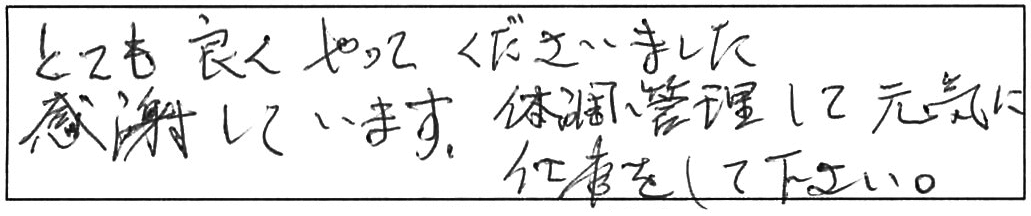 とても良くやってくださいました
感謝しています。体調管理して元気に
仕事をして下さい。